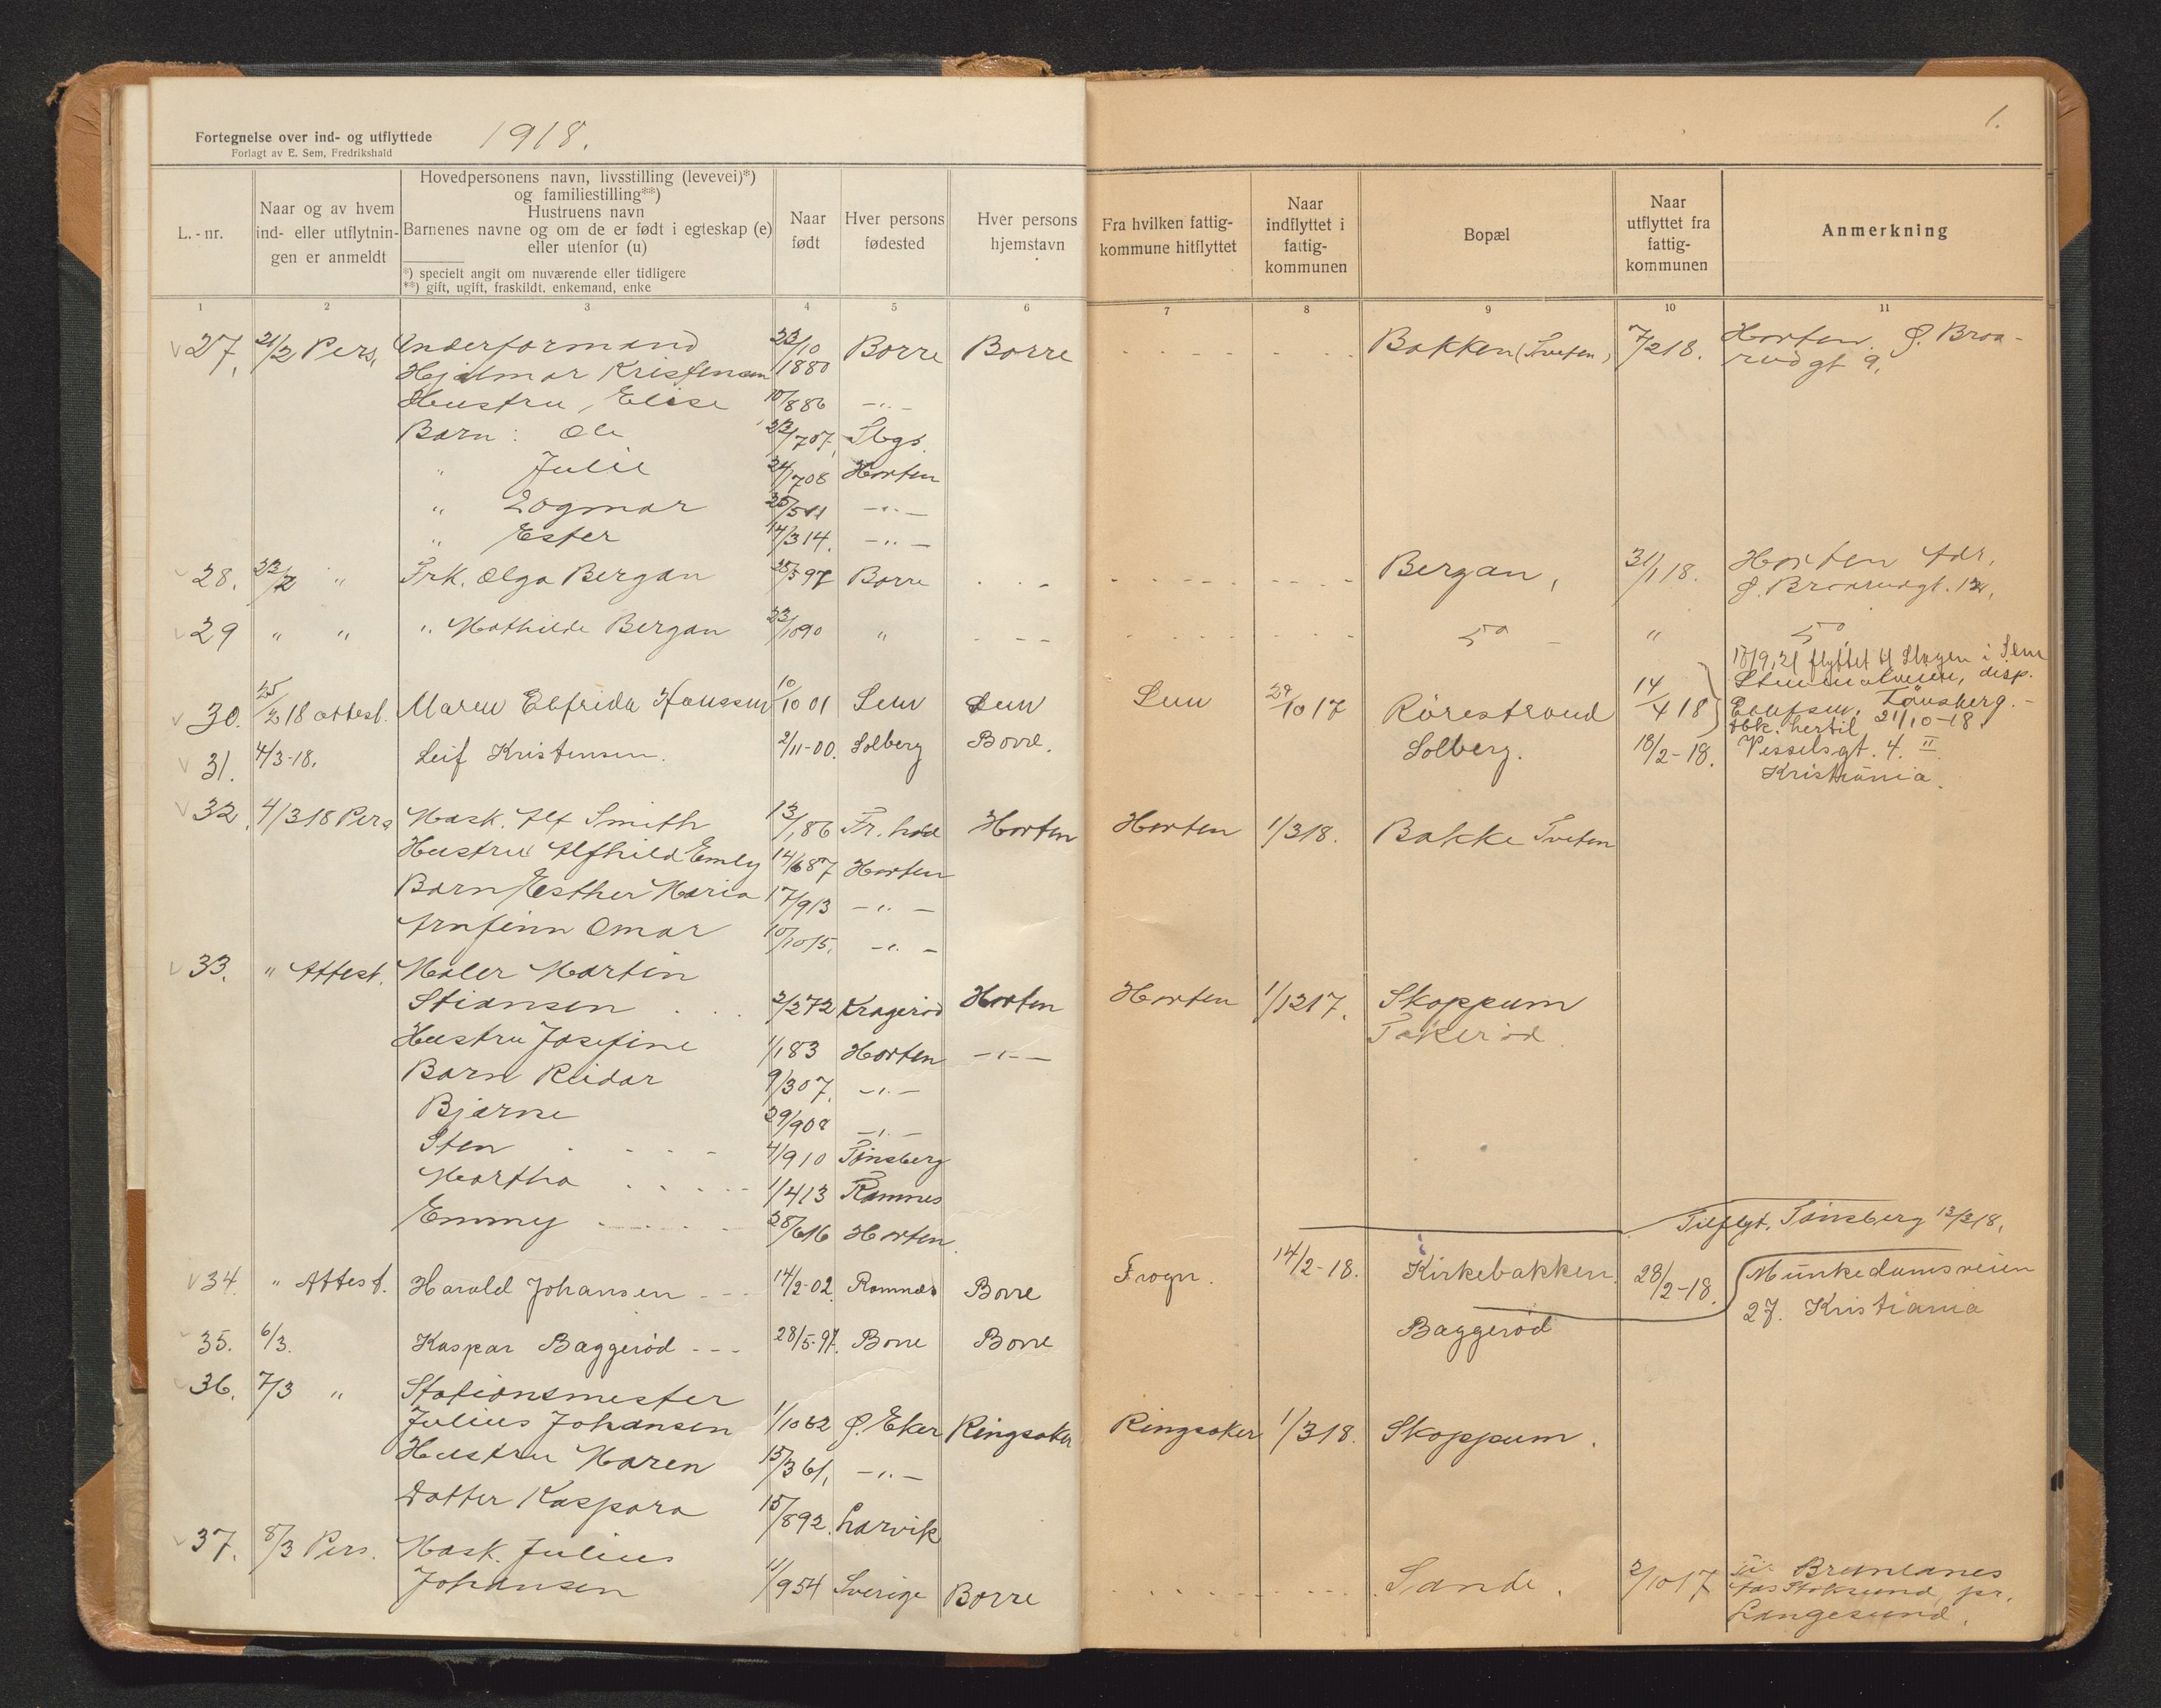 Fortegnelse over ind- og utflyttede 1918. 1.
Forlagt av E. Sem, Fredrikshald
L.-nr.
Naar og av hvem ind- eller utflytningen er anmeldt
Hovedpersonens navn, livsstilling (levevei)*)
og familiestilling**)
Hustruens navn
Barnenes navne og om de er født i egteskap (e)
eller utenfor (u)
*) specielt angit om nuværende eller tidligere
**) gift, ugift, fraskildt, enkemand, enke
Naar født
Hver persons fødested
Hver persons hjemstavn
Fra hvilken fattig-
kommune hitflyttet
Naar
indflyttet i
fattig-
kommunen
Bopæl
Naar
utflyttet fra
fattig-
kommunen
Anmerkning
1 2 3 4 5 6 7 8 9 10 11
27, 21/2 Pers, Underformand 22/10 Borre Borre Bakken (Tveten) 7/2 18. Horten. Ø. Braa-
Hjalmar Kristensen 1880 rudgt 9.
Hustru, Elise 10/8 86 -"-
Barn: Ole 23/7 07,
" Julie 24/7 08 Horten
" Dagmar 25/5 11 -"-
" Ester 14/3 14. -"-
28. 23/2 " Frk. Olga Bergan 25/5 97 Borre Bergan, 31/1 18. Horten Adr.
Ø. Braarudgt. 12,
29 " " " Mathilde Bergan 23/10 90 " do " do
30. 25/2 18 attest. Maren Elfrida Hanssen 10/10 01 Sem Sem Sem 29/10 17 Rörestrand 14/4 18 18/9.21 flyttet til Slagen i Sem
disp.
Tönsberg.-
tbk. hertil 21/10-18
31. 4/3-18. Leif Kristensen. 2/11-00. Solberg Borre. Solberg. 18/2-18. Vesselsgt. 4. II
Kristiania.
32. 4/3 18 Pers Mask. Alf Smith 13/1 86 Fr.hald Horten Horten 1/3 18. Bakke Tveten
Hustru Alfhild Emly 14/6 87 Horten
Barn Esther Maria 17/9 13 -"-
Arnfinn Omar 10/10 15. -"-
33. " Attest. Maler Martin
Stiansen 2/2 72 Kragerød Horten Horten 1/12 17. Skoppum
Hustru Josefine 1/1 83 Horten -"- Takerød.
Barn Reidar 9/3 07. -"-
Bjarne 29/9 08 -"-
Sten 4/9 10 Tönsberg
Martha 1/4 13 Ramnes
Emmy 28/6 16 Horten. Tilflyt. Tønsberg 12/3 18,
34. " Attest. Harald Johansen 14/2-02. Ramnes Borre Frogn. 14/2-18. i Kirkebakken. 28/2-18. Munkedamsveien
27. Kristiania
35. 6/3. Kaspar Baggerød --- 28/5-97. Borre Borre Baggerød
36. 7/3 " Stationsmester
Julius Johansen 1/10 62 Ø. Eker Ringsaker Ringsaker 1/3 18. Skoppum.
Hustru Maren 15/3 61, -"-
Datter Kaspara 15/8 92. Larvik
37. 8/3 Pers. Mask. Julius
Johansen 11/9 54 Sverige Borre Sande. 2/10 17 Til Brunlanes
pr.
Langesund.